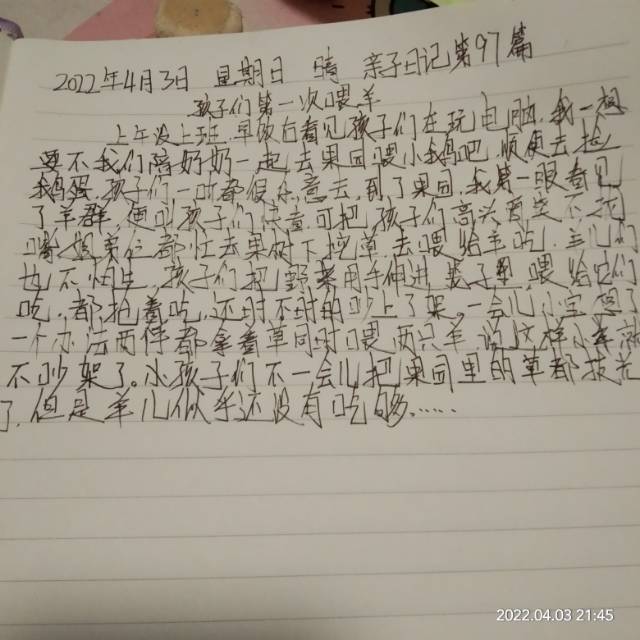 2022年4月3日 星期日 晴 亲子日记第97篇
孩子们第一次喂羊
上午没上班,早饭后看见孩子们在玩电脑,我一想
要不我们陪奶奶一起去果园喂小鸡吧,顺便去捡
鸡蛋,孩子们一听都很乐意去,到了果园,我第一眼看见
了羊群,便叫孩子们
孩子们高兴
都忙去果树下挖草,去喂给羊吃,羊儿们
也不怕生,孩子们把野菜用手伸进 里,喂给它们
吃,都抢着吃,还时不时的吵上了架。一会儿小宝想了
一个办法两伴都拿着草同时喂两只羊,说这样小羊就
不吵架了。小孩子们不一会儿把果园里的草都拔光
了,但是羊儿似乎还没有吃够……
2022.04.03 21:45